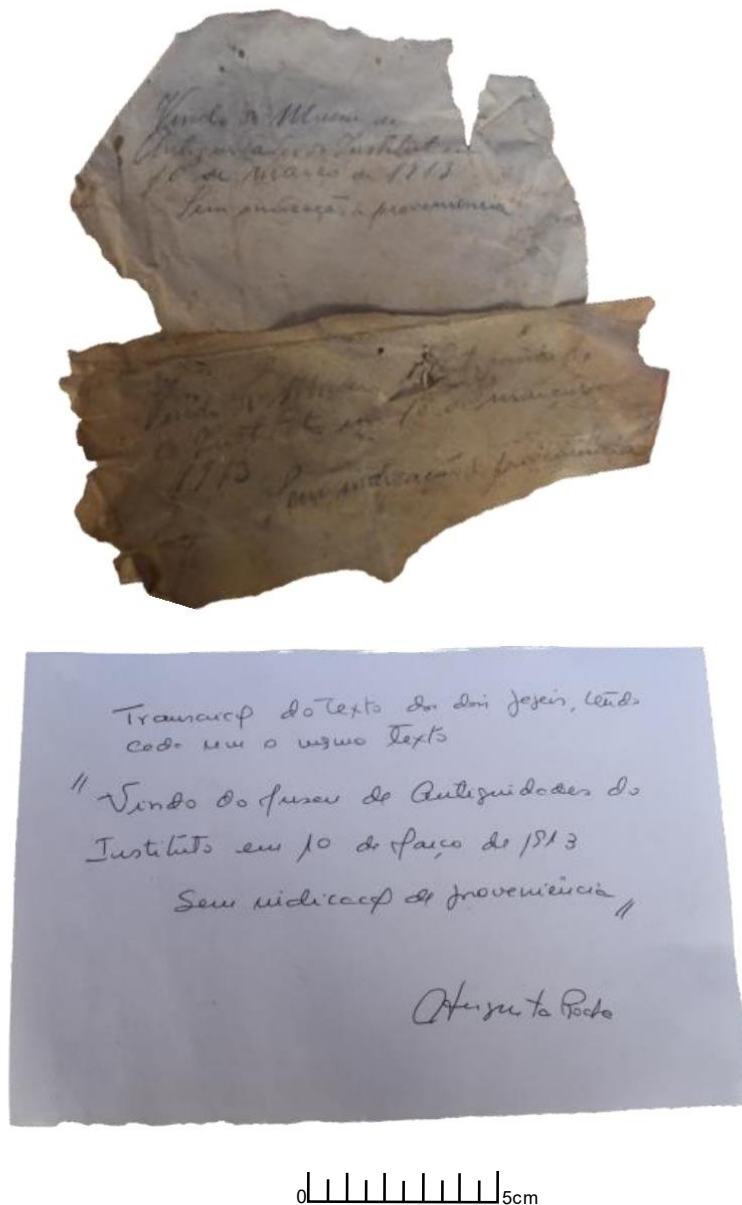 Vindo do Museu de
Antiguidades do Instituto em
10 de Março de 1913
Sem indicação de proveniencia
Vindo do Museu Antiguidades
do Instituto em 10 de março de
1913 Sem indicação de proveniencia
Transcrição do texto dos dois papeis, tendo
cada um o mesmo texto
"Vindo do Museu de Antiguidades do
Instituto em 10 de Março de 1913
Sem indicação de proveniência"
Augusta Rocha
0 5cm